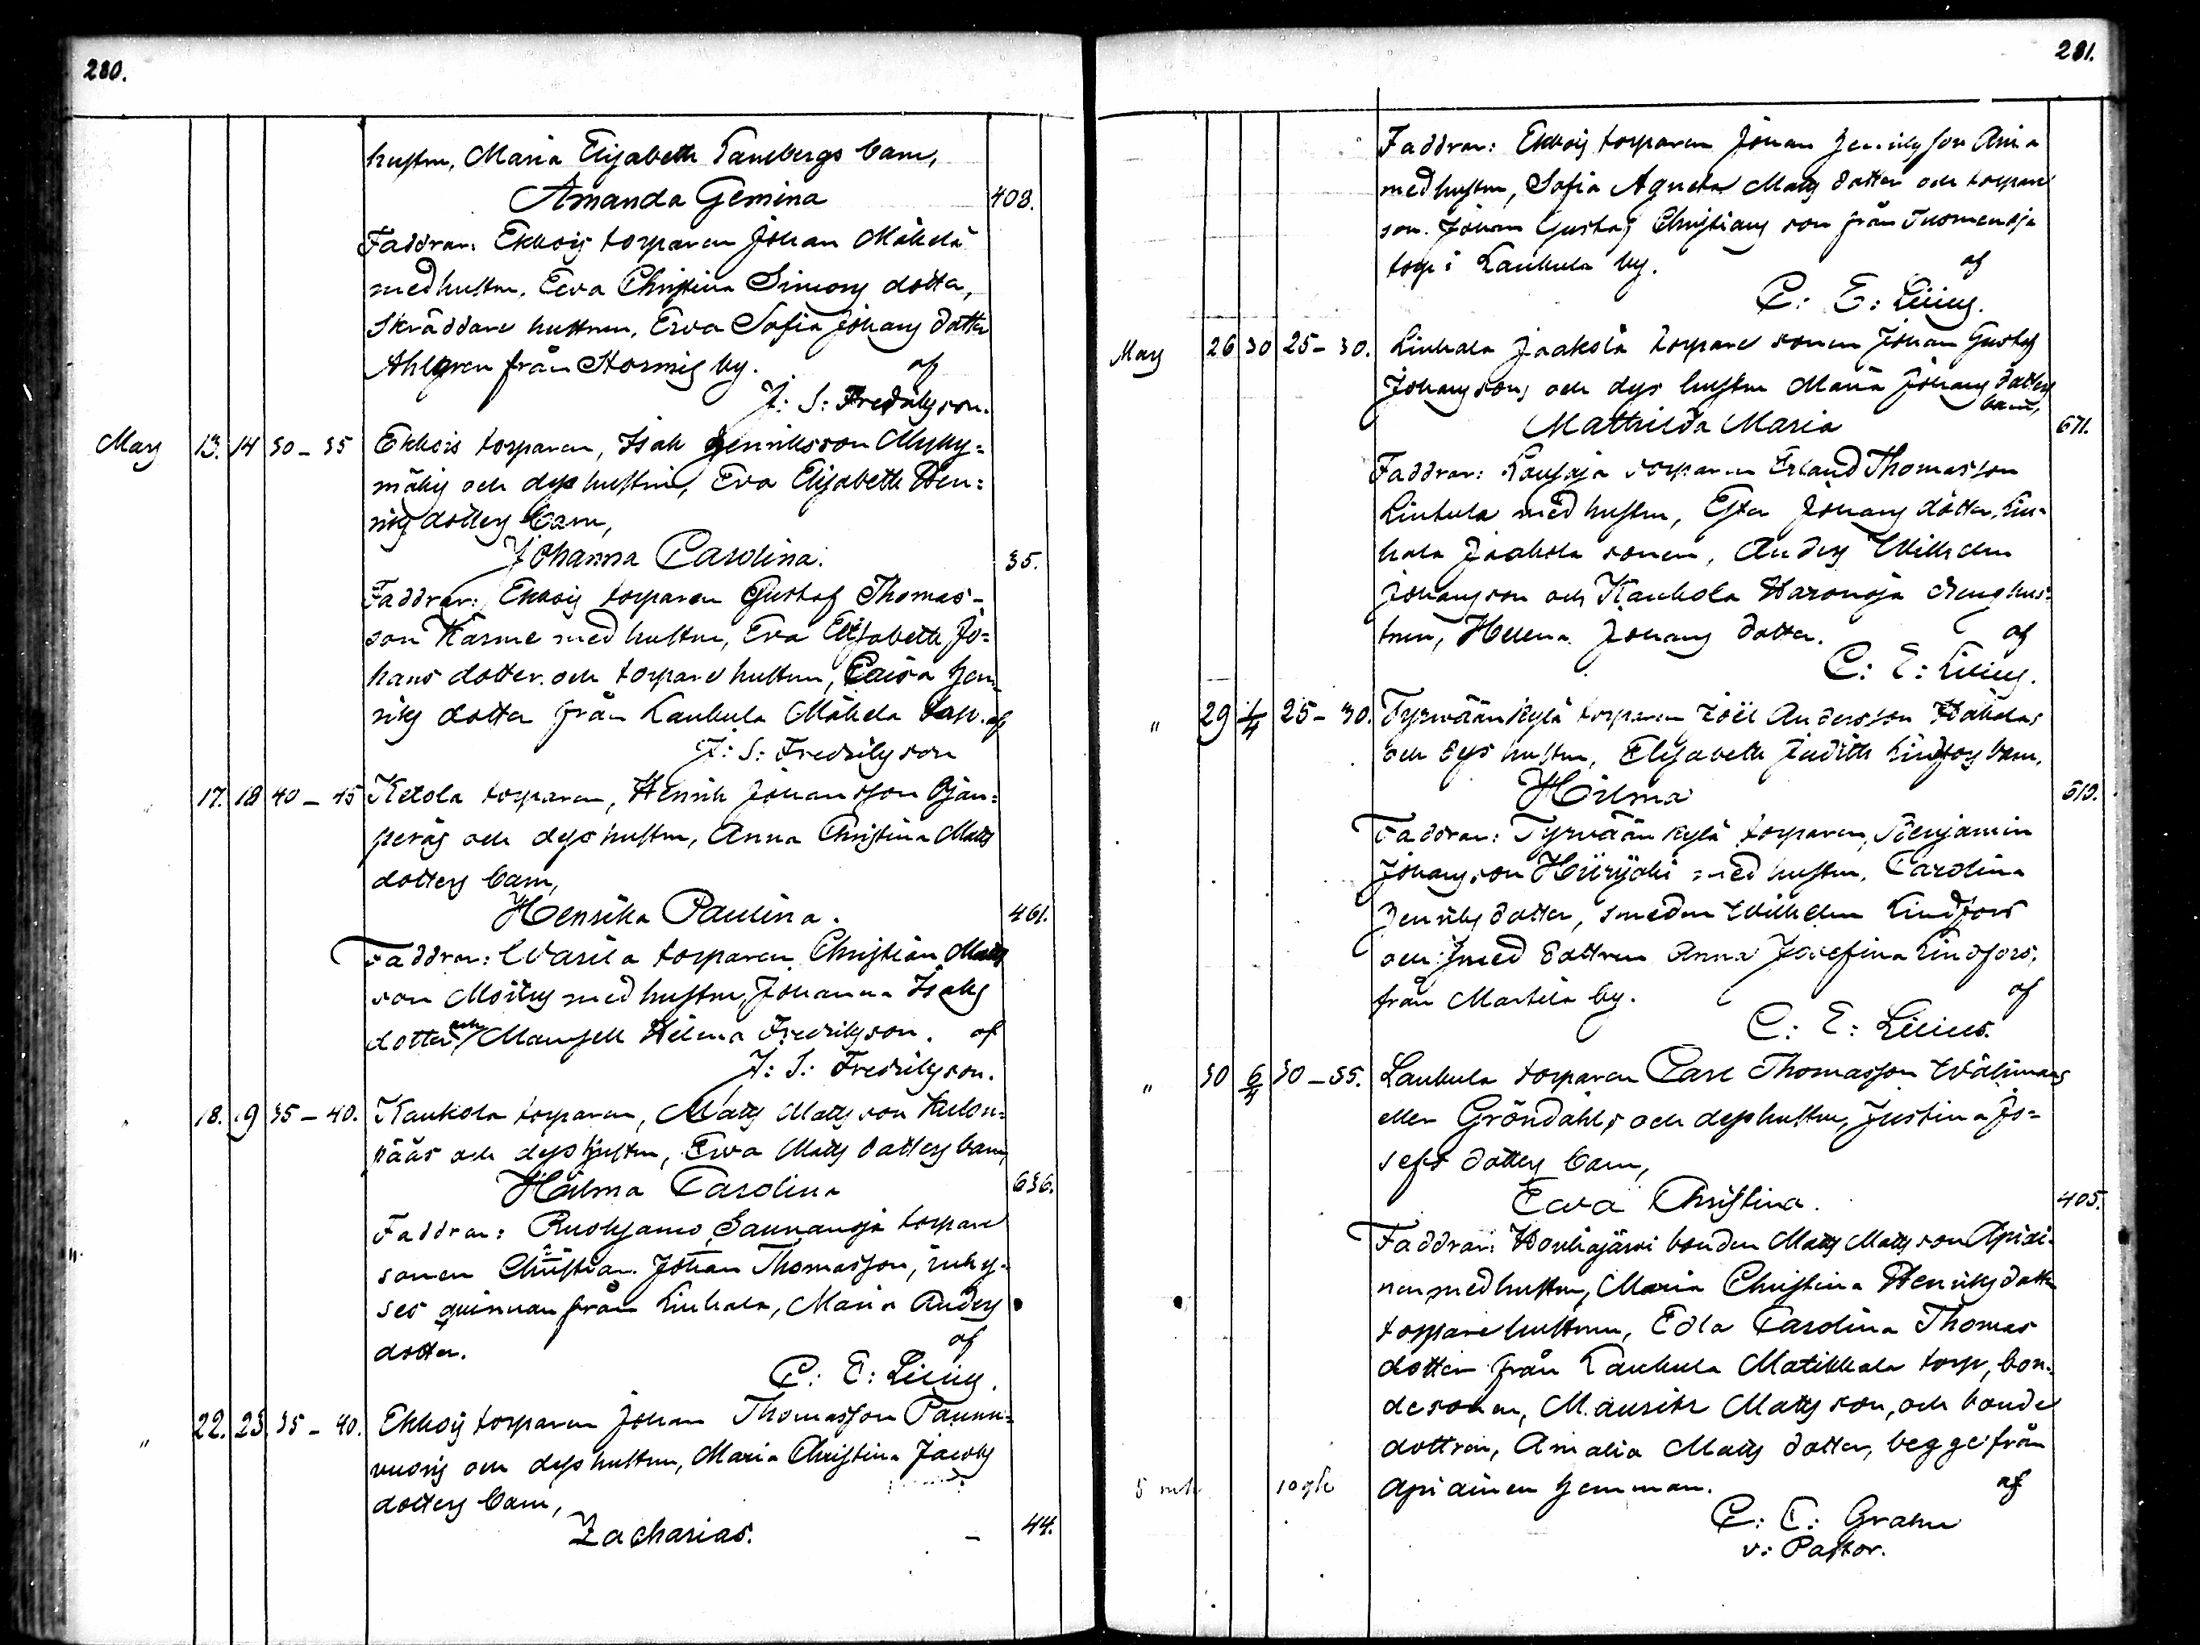 280.
hustru, Maria Elisabeth barn,
Amanda Gemina 408.
Faddrar: Ekkois torparen Johan Mäkelä
med hustru, Eva Christina Simons dotter,
Skräddare hustrun, Eva Sofia Johans dotter
Ahlgren från Stormis by. af
J: S: Fredriksson.
Mars 13. 14 30 – 35 Ekkois torparen, Isak Henriksson Myky=
mäkis och dess hustru, Eva Elisabeth Hen=
riks dotters barn,
Johanna Carolina. 35.
Faddrar: Ekkois torparen Gustaf Thomas-
son med hustru, Eva Elisabeth Jo=
hans dotter och torpare hustrun, Caisa Hen
riks dotter från Laukula Mäkelä torp. af
J: S: Fredriksson
" 17. 18 40 – 45 Ketola torparen, Henrik Johansson Ojan=
peräs och dess hustru, Anna Christina Matts
dotters barn,
Henrika Paulina. 461.
Faddrar: Wasila torparen, Christian Matts
son med hustru, Johanna Isaks
dotter och Mamsell Hilma Fredriksson. af
J: S: Fredriksson.
" 18. 19 35 – 40. Kaukola torparen, Matts Mattsson
pääs och dess hustru, Eva Matts dotters barn,
Hilma Carolina 636.
Faddrar: Ruohsamo, Saunanoja torpare
sonen Christian Johan Thomasson, inhy-
ses qvinnan från Liuhala, Maria Anders
dotter. af
C: E: Lilius.
" 22. 23. 35 – 40. Ekkois torparen Johan Thomasson Pannu=
vuoris och dess hustru, Maria Christina Jacobs
dotters barn,
Zacharias. – 44.
281.
Faddrar: Ekkois torparen Johan Henriksson
med hustru, Sofia Agneta Matts dotter och torpare
son. Johan Gustaf Christians son från
torp i Laukula by. af
C: E: Lilius.
Mars 26 30 25 – 30. Liuhala Jaakola torpare sonen Johan Gustaf
Johanssons och dess hustru Maria Johans dotters
barn,
Mathilda Maria 671.
Faddrar: torparen Erland Thomasson
med hustru, Ester Johans dotter, Liu-
hala Jaakola sonen, Anders Wilhelm
Johansson och Kaukola Haronoja dräng hus-
trun, Helena Johans dotter. af
C: E: Lilius.
" 29 1/4 25 – 30. Tyrväänkylä torparen Joël Andersson
och dess hustru, Elisabeth Judith Lindfors barn,
Hilma 619.
Faddrar: Tyrväänkylä torparen, Benjamin
Johansson med hustru, Carolina
Henriks dotter, smeden Wilhelm Lindfors
och smed dottren Anna Josefina Lindfors,
från Martila by. af
C: E: Lilius.
" 30 6/4 30 – 35. Laukula torparen Carl Thomasson Wälimaas
eller Gröndahls och dess hustru, Justina Jo=
sefs dotters barn,
Eva Christina. 405.
Faddrar: Koukajärvi bonden Matts Mattsson Apiai-
nen med hustru, Maria Christina Henriks dotter
torpare hustrun, Edla Carolina Thomas
dotter från Laukula Matikkala torp, bon-
desonen, Mauritz Mattsson, och bonde
dottren, Amalia Matts dotter, begge från
5 mk 10 Apiainen hemman. af
C: E: Grahn
v: Pastor.